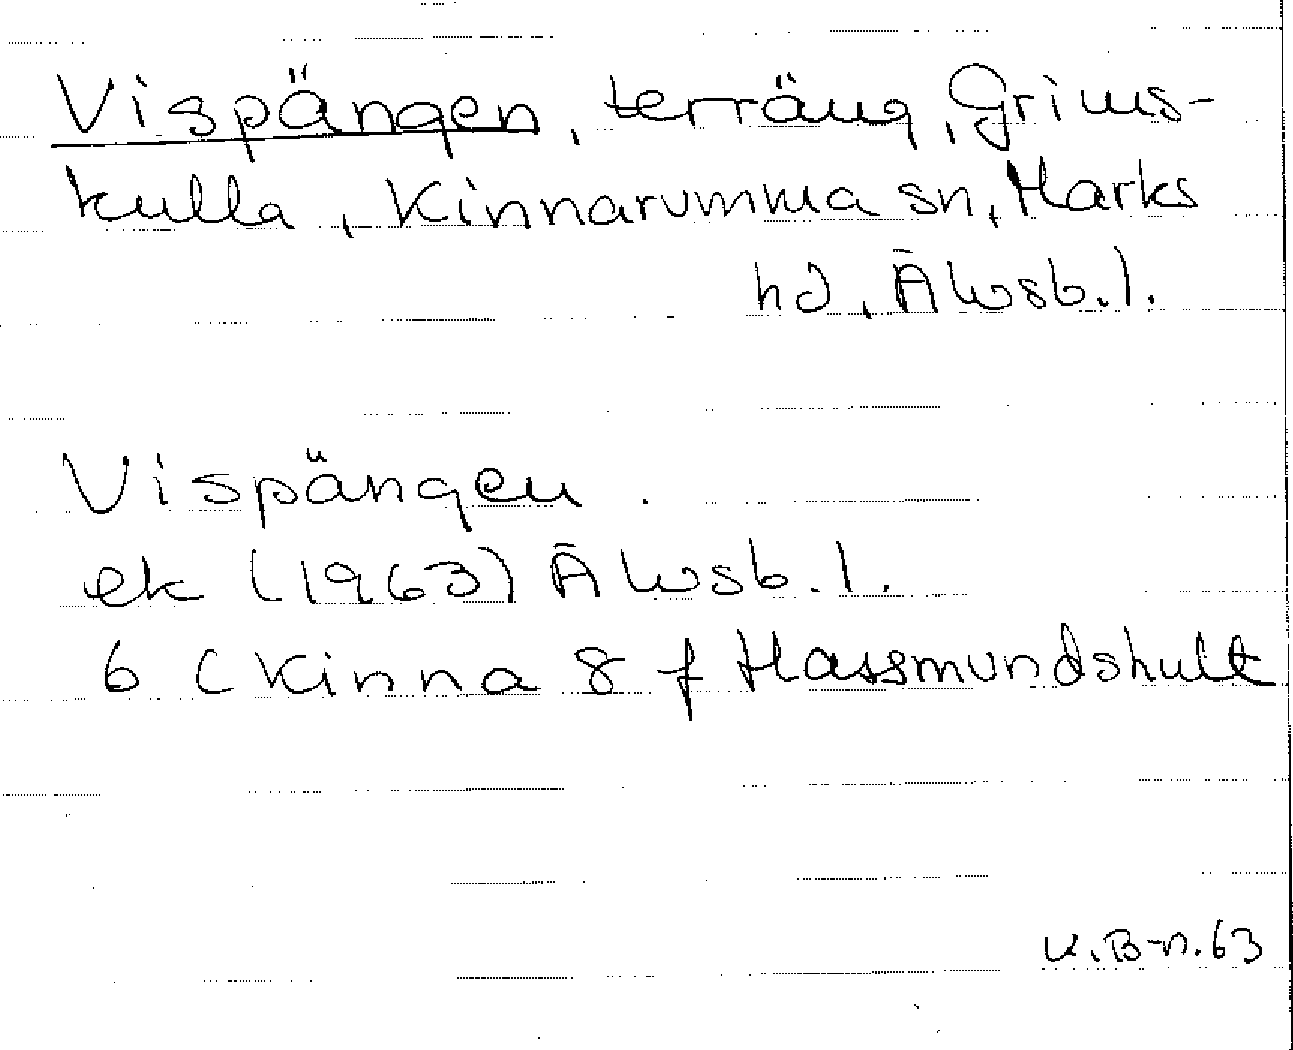 Vispängen, terräng, Grims-
kulla, Kinnarumma sn, Marks
hd, Älvsb. l.
Vispängen.
ek (1963) Älvsb. l.
6 C Kinna 8 f Hassmundshult
K.B-n.63